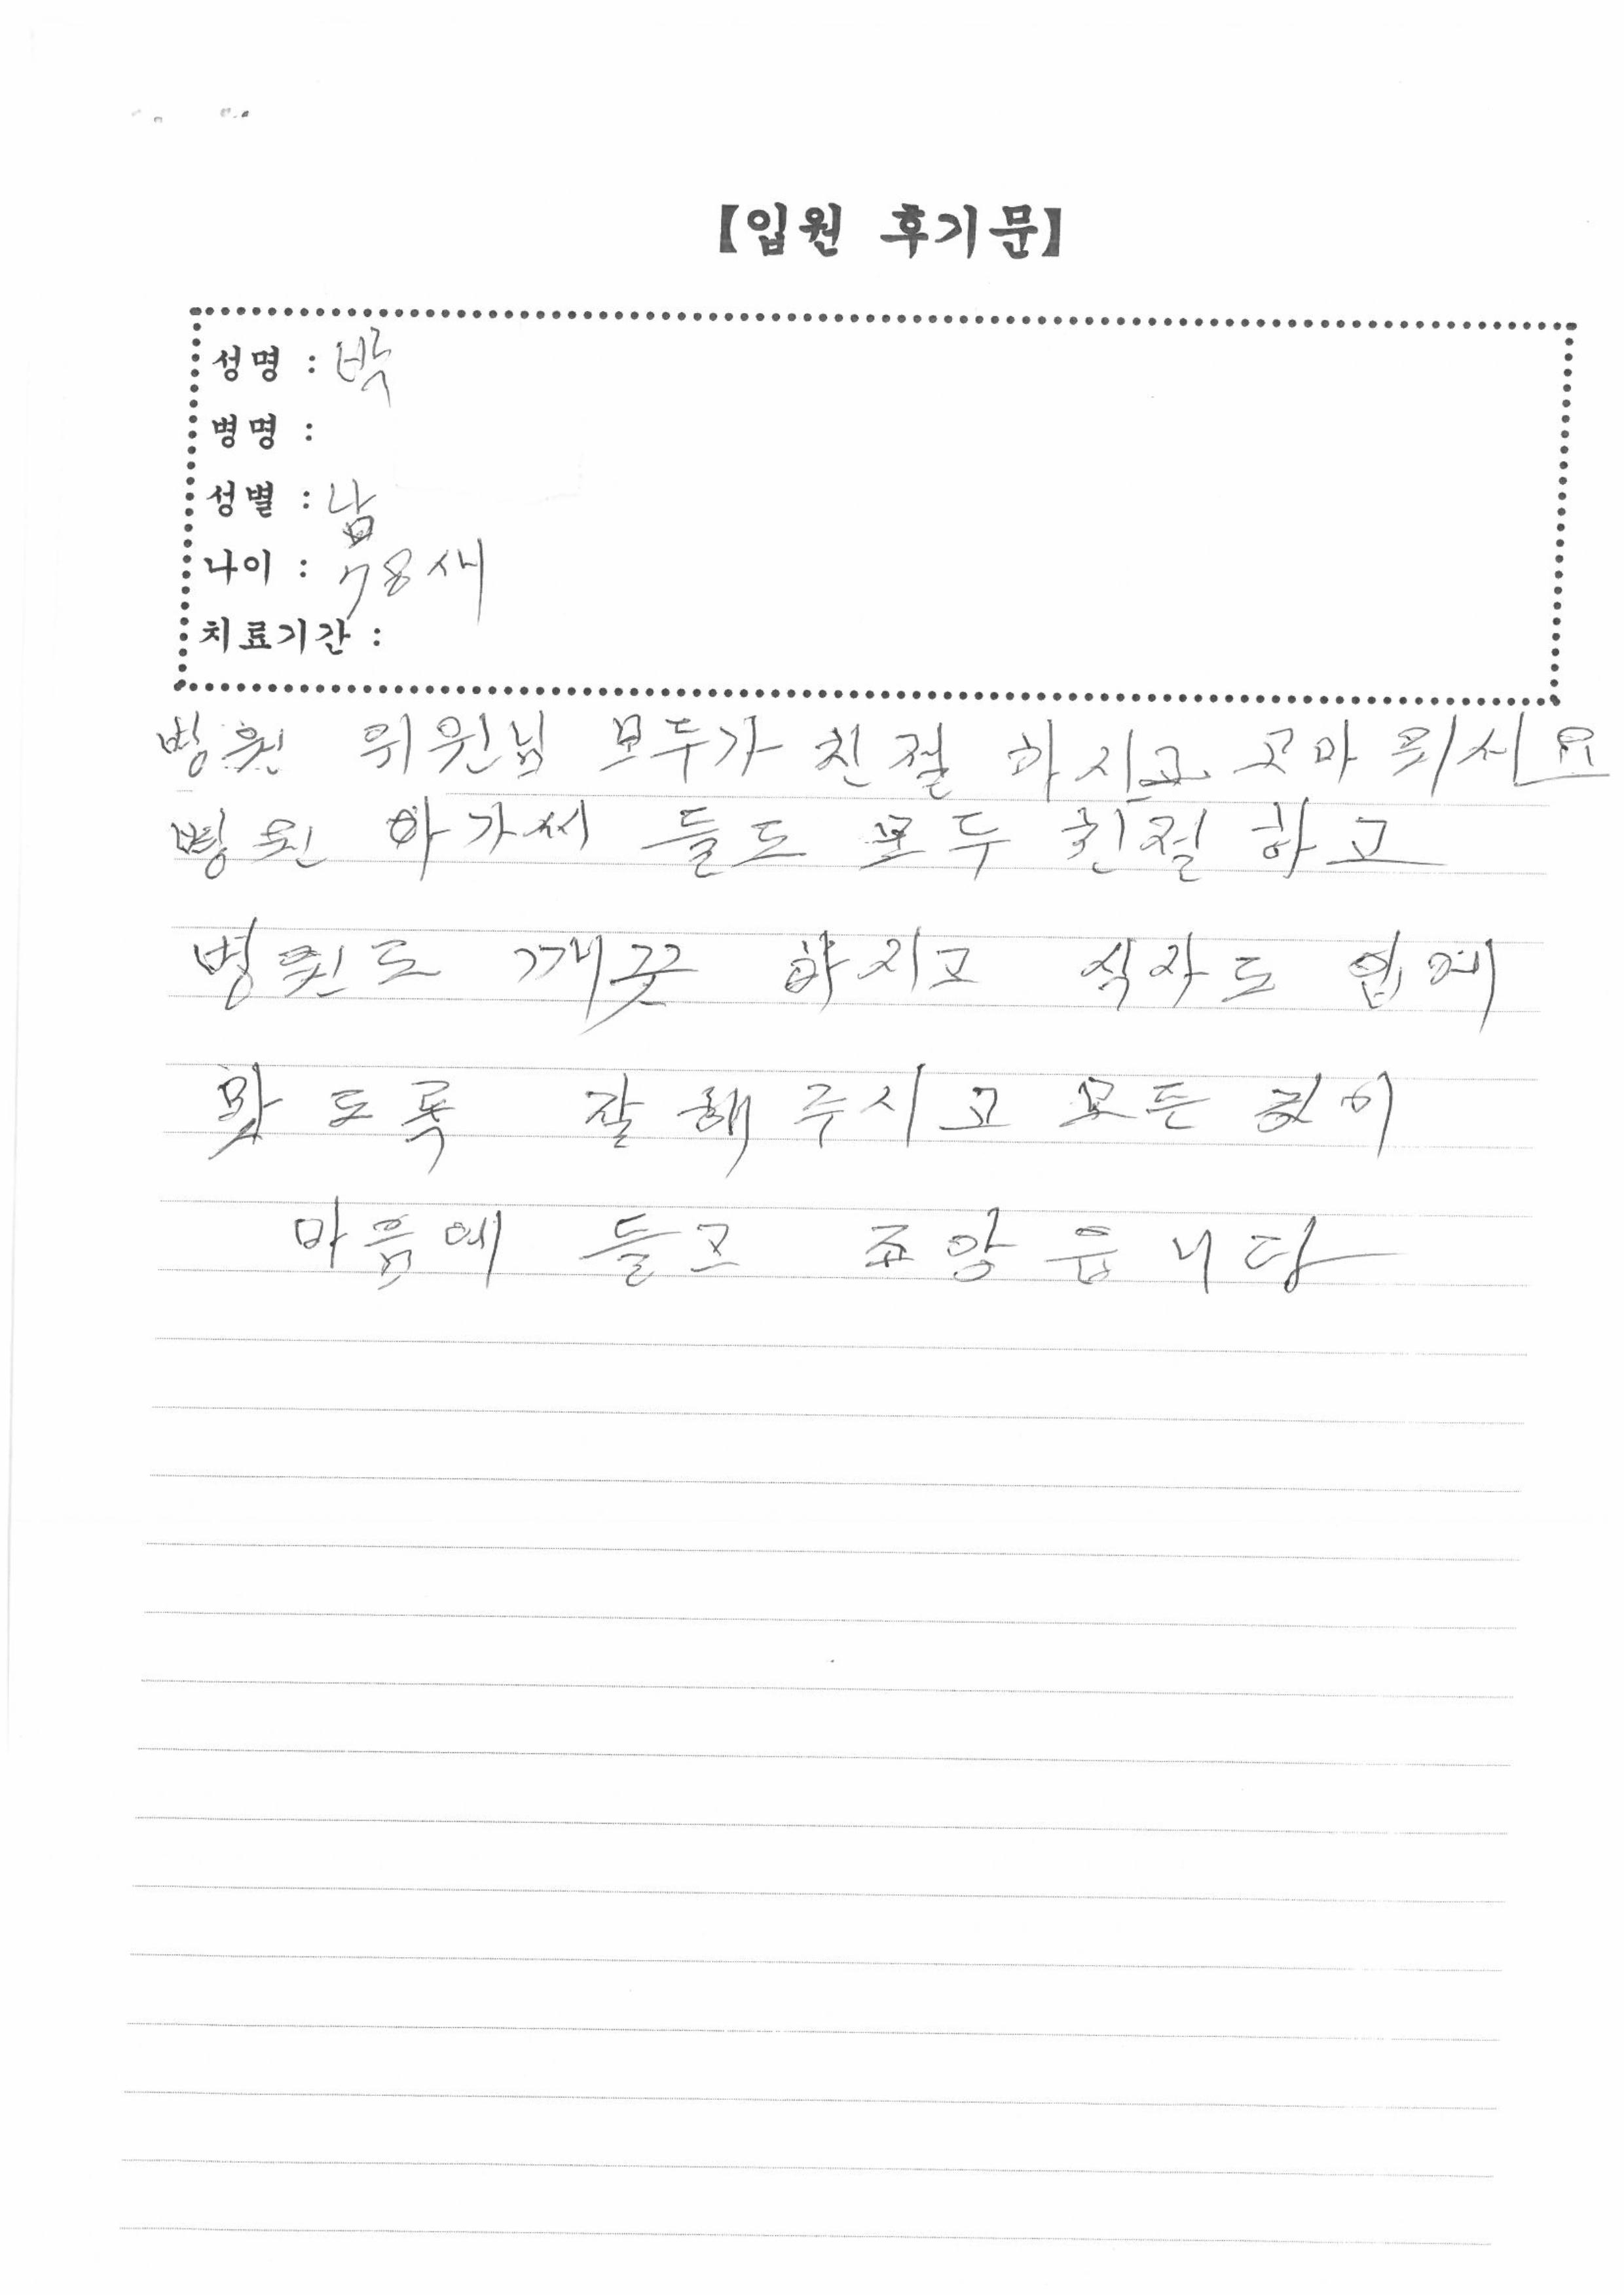 【입원 후기문】
성명 : 박
병명 :
성별 : 남
나이 : 78새
치료기간 :
병원 위원님 모두가 친절 하시고 고마 워서요
병원 아가씨 들도 모두 친절 하고
병원도 깨끗 하지고 식사도 입에
맞 도록 잘 해 주시고 모든 것이
마음에 들고 조았읍니다